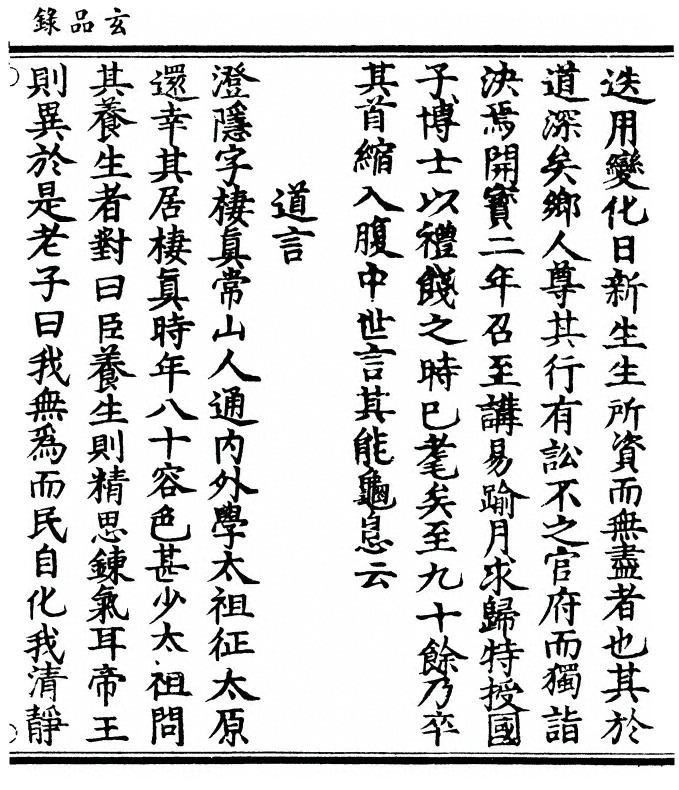 玄品錄
迭用變化日新生生所資而無盡者也其於
道深矣鄉人尊其行有訟不之官府而獨詣
決焉開寳二年召至講易踰月求歸特授國
子博士以禮餞之時已耄矣至九十餘乃卒
其首縮入腹中世言其能龜息云
道言
澄隱字棲眞常山人通內外學太祖征太原
還幸其居棲眞時年八十容色甚少太祖問
其養生者對曰臣養生則精思鍊氣耳帝王
則異於是老子曰我無爲而民自化我清靜